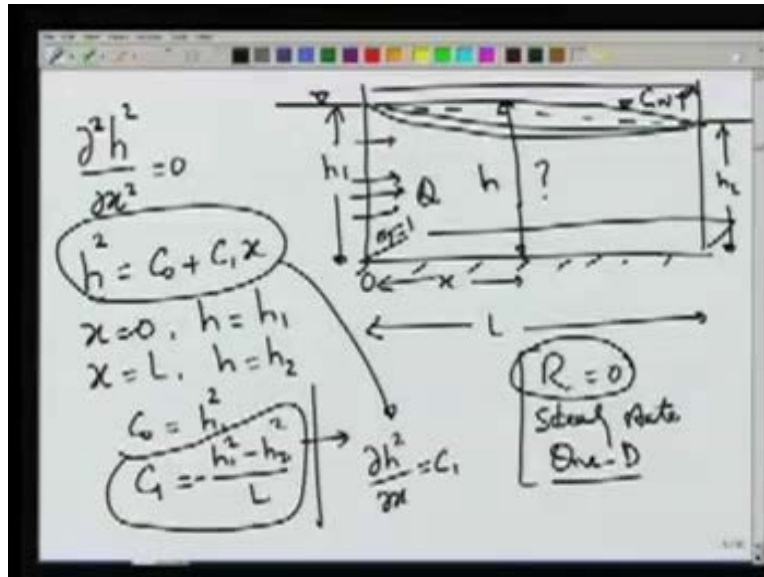 ∂²h²/∂x² = 0
h² = C₀ + C₁x
x=0, h=h₁
x=L, h=h₂
C₀ = h₁²
C₁ = -(h₁² - h₂²)/L
∂h²/∂x = C₁
h₁
Q
h
?
h₂
0
x
L
R = 0
State
One-D